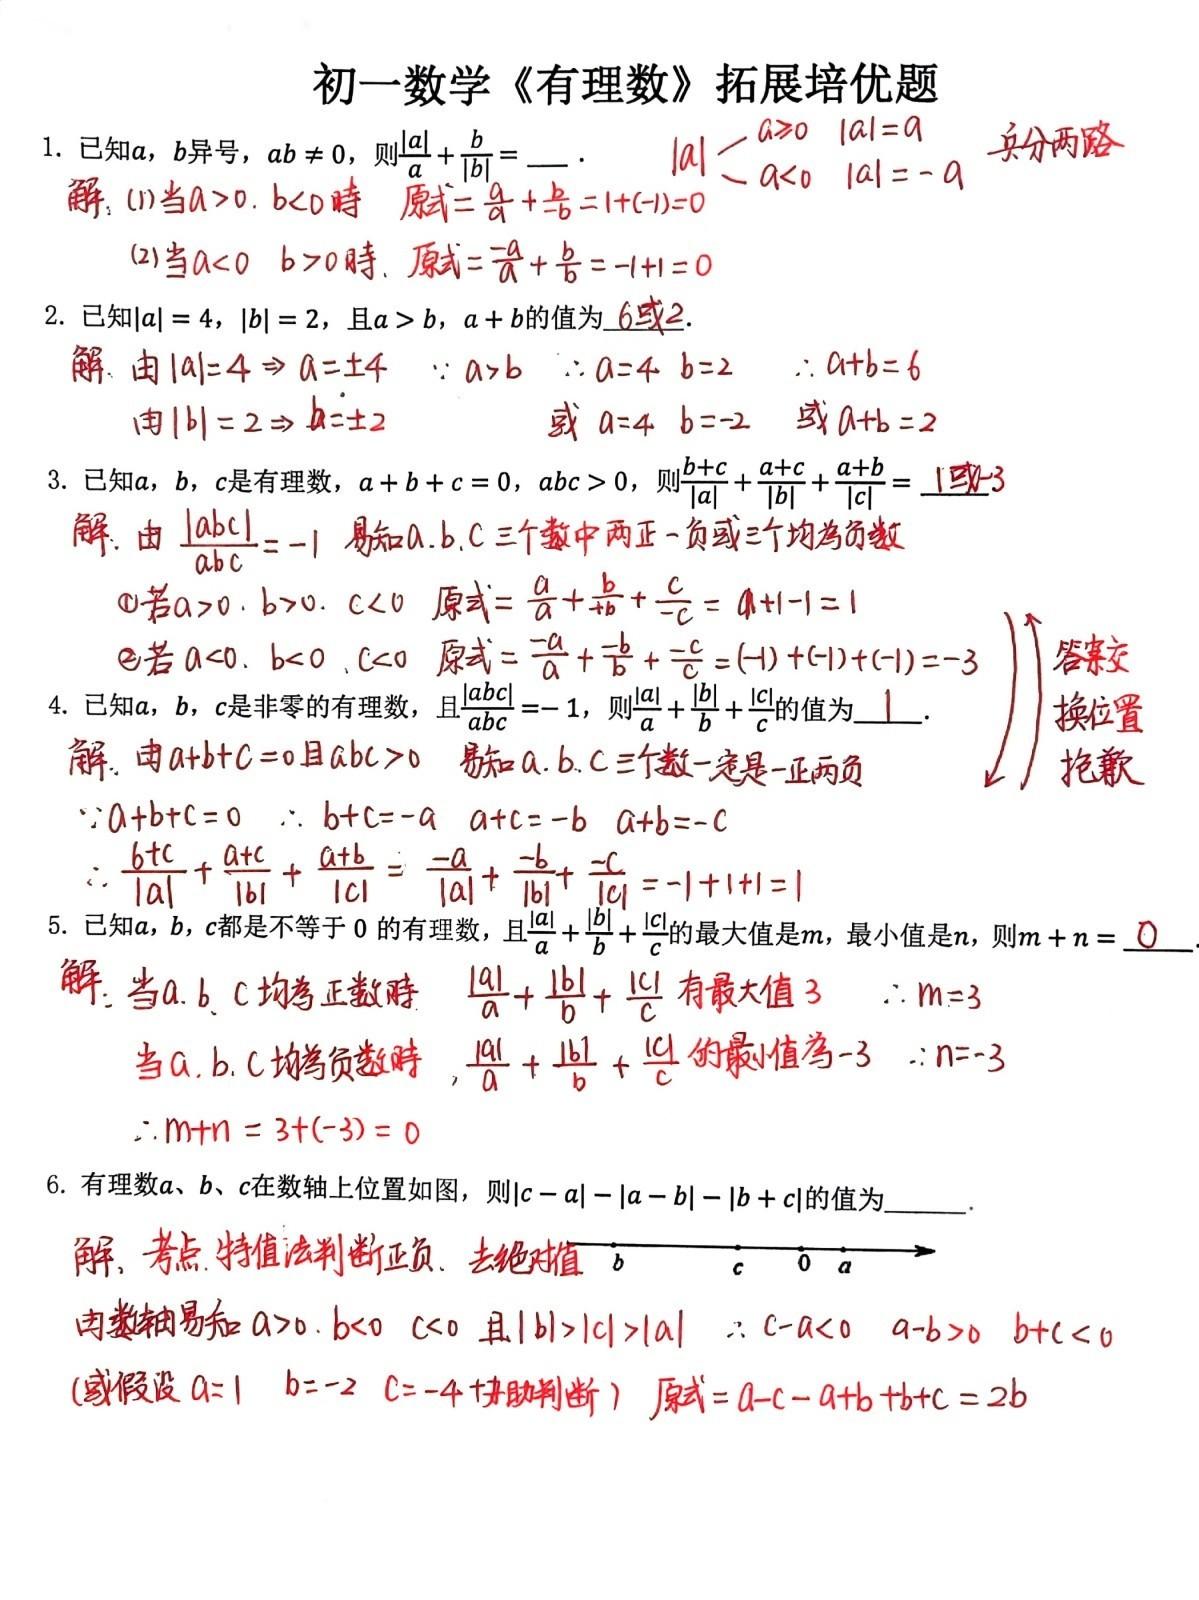 初一数学《有理数》拓展培优题
1. 已知a，b异号，ab ≠ 0，则|a|/a + b/|b| = ___ .
|a| a≥0 |a|=a
a<0 |a|=-a
兵分两路
解：(1)当a>0. b<0時 原式=a/a + b/-b =1+(-1)=0
(2)当a<0 b>0時. 原式=-a/a + b/b = -1+1=0
2. 已知|a| = 4，|b| = 2，且a > b，a + b的值为 6或2.
解. 由|a|=4 ⇒ a=±4 ∵ a>b ∴ a=4 b=2 ∴ a+b=6
由|b|=2 ⇒ b=±2 或 a=4 b=-2 或 a+b=2
3. 已知a，b，c是有理数，a + b + c = 0，abc > 0，则(b+c)/|a| + (a+c)/|b| + (a+b)/|c| = 1或-3
解. 由 |abc|/abc = -1 易知a.b.c 三个数中两正一负或三个均為负数
①若a>0. b>0. c<0 原式= a/a + b/+b + c/-c = 1+1-1=1
②若 a<0. b<0 、c<0 原式= -a/a + -b/b + -c/c =(-1)+(-1)+(-1)=-3
答案交
换位置
抱歉
4. 已知a，b，c是非零的有理数，且|abc|/abc =− 1，则|a|/a + |b|/b + |c|/c的值为 1 .
解. 由a+b+c=0且abc>0 易知 a.b.c三个数一定是一正两负
∵a+b+c=0 ∴ b+c=-a a+c=-b a+b=-c
∴ (b+c)/|a| + (a+c)/|b| + (a+b)/|c| = -a/|a| + -b/|b| + -c/|c| =-1+1+1=1
5. 已知a，b，c都是不等于 0 的有理数，且|a|/a + |b|/b + |c|/c的最大值是m，最小值是n，则m + n = 0 .
解：当a.b.c均為正数時 |a|/a + |b|/b + |c|/c 有最大值3 ∴ m=3
当a.b.c均為负数時 , |a|/a + |b|/b + |c|/c 的最小值為-3 ∴n=-3
∴m+n = 3+(-3) = 0
6. 有理数a、b、c在数轴上位置如图，则|c − a| − |a − b| − |b + c|的值为______.
解. 考点. 特值法判断正负. 去绝对值
b c 0 a
由数轴易知 a>0. b<0 c<0 且|b|>|c|>|a| ∴ c-a<0 a-b>0 b+c<0
(或假设 a=1 b=-2 c=-4 协助判断) 原式=a-c-a+b+b+c=2b